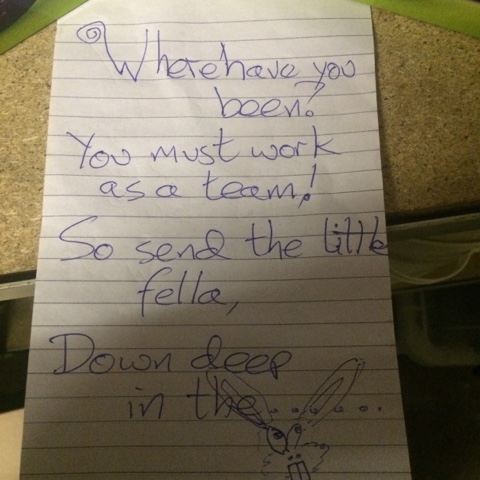 Where have you
been?
You must work
as a team!
So send the little
fella,
Down deep
in the........